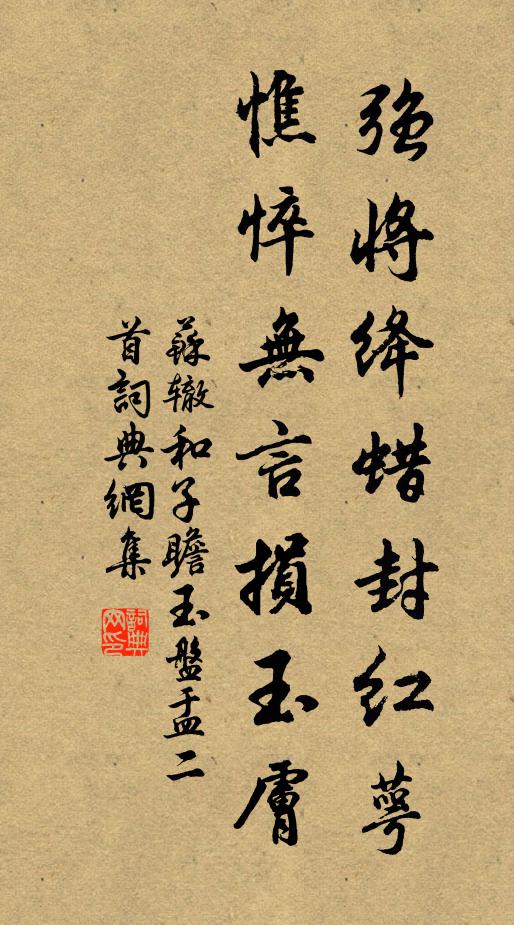 强将绛蜡封红萼
憔悴無言損玉膚
蘇辙和子瞻玉盤盂二
首詞典網集
詞典网印